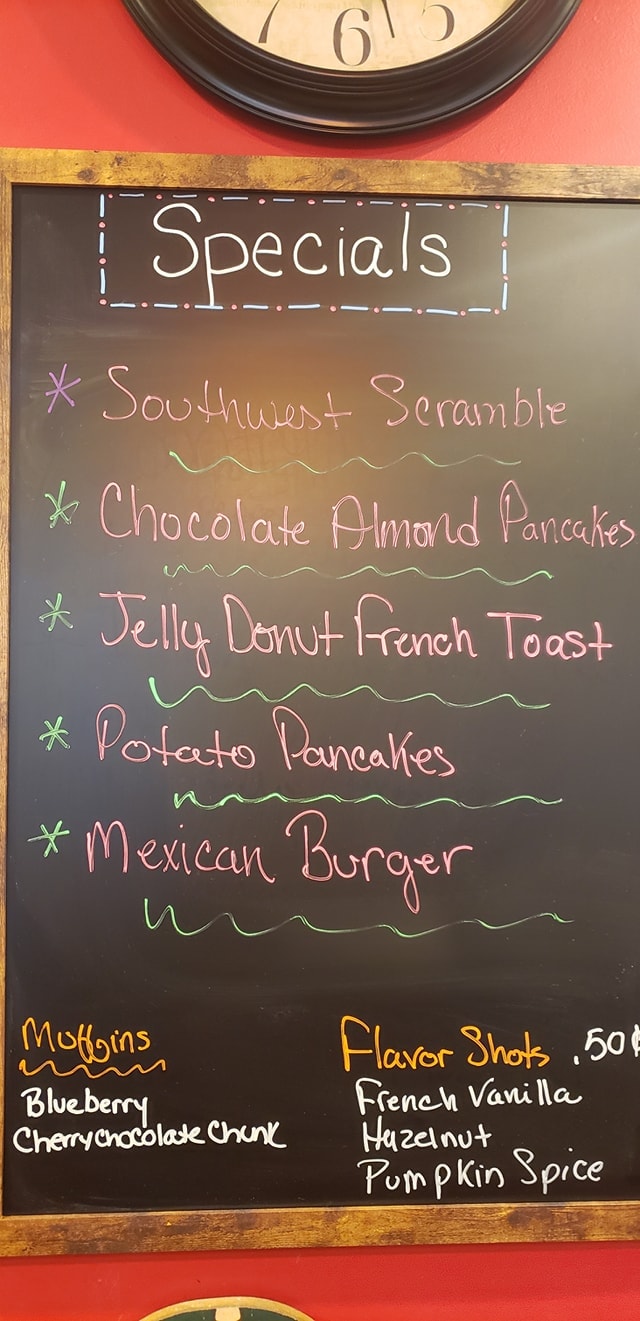 7 6 5
Specials
* Southwest Scramble
* Chocolate Almond Pancakes
* Jelly Donut French Toast
* Potato Pancakes
* Mexican Burger
Muffins
Blueberry
Cherry chocolate Chunk
Flavor Shots .50¢
French Vanilla
Hazelnut
Pumpkin Spice